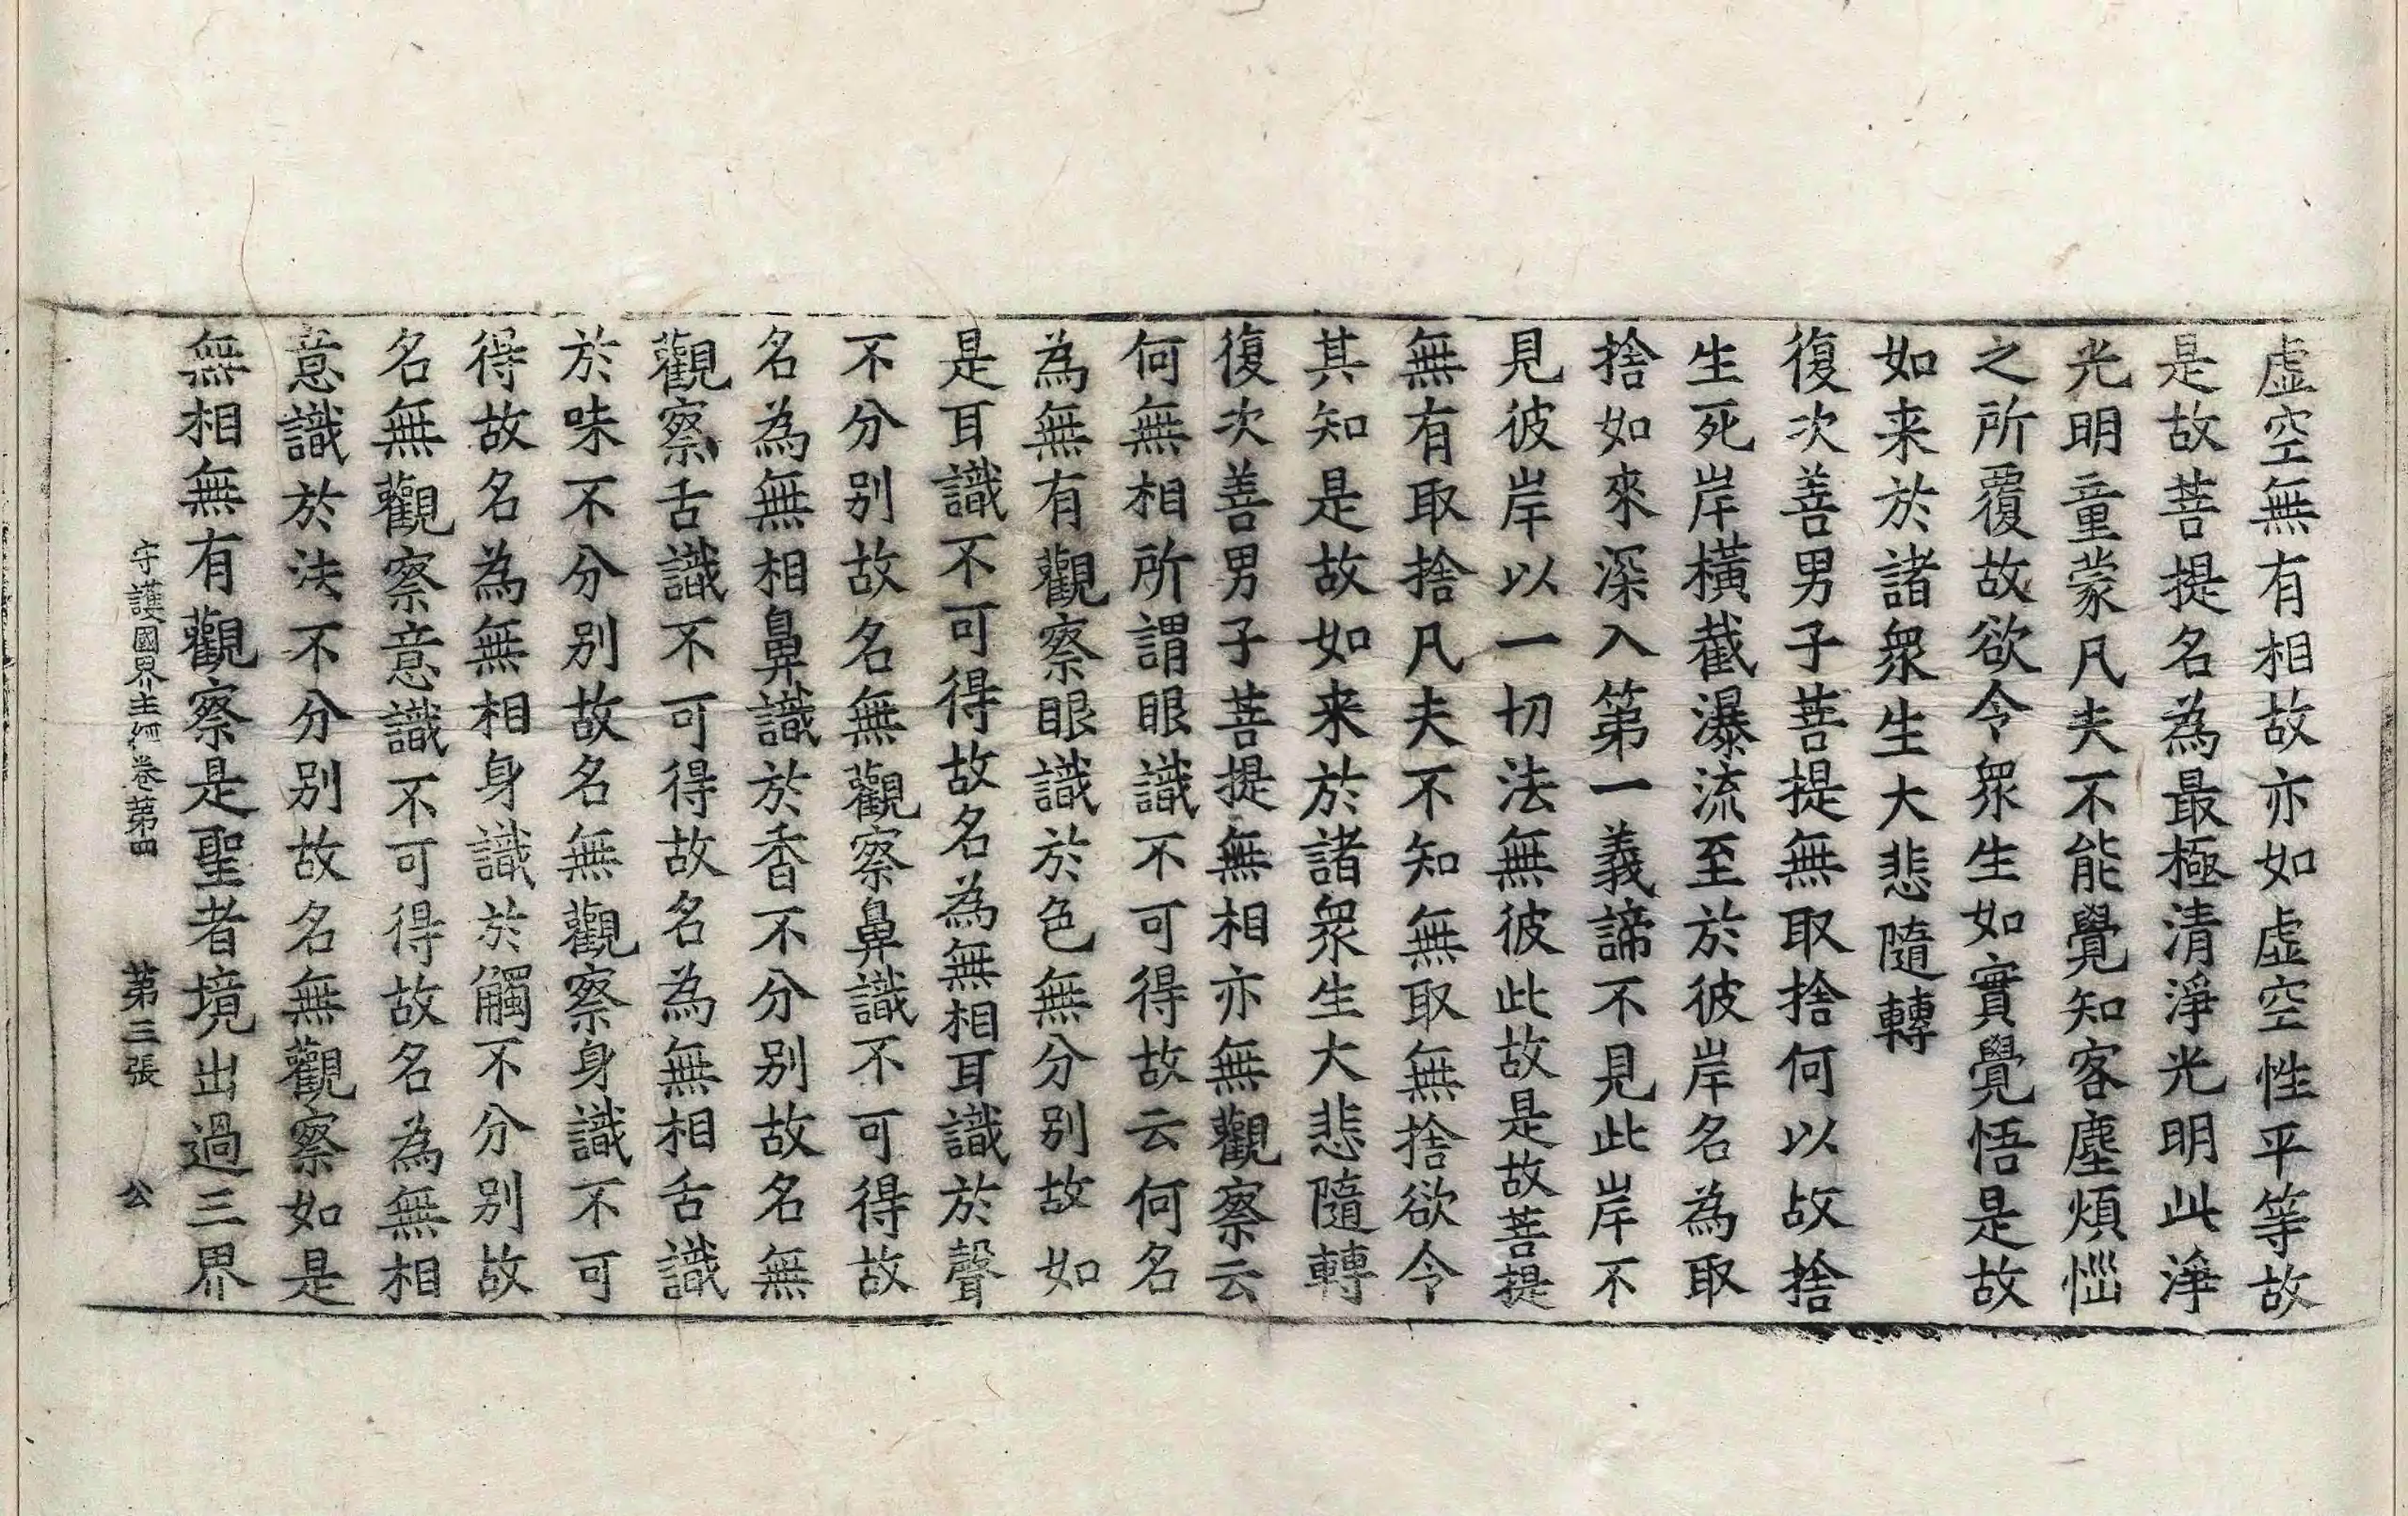 虛空無有相故亦如虛空性平等故
是故菩提名為最極清淨光明此淨
光明童蒙凡夫不能覺知客塵煩惱
之所覆故欲令眾生如實覺悟是故
如来於諸眾生大悲隨轉
復次善男子菩提無取捨何以故捨
生死岸橫截瀑流至於彼岸名為取
捨如來深入第一義諦不見此岸不
見彼岸以一切法無彼此故是故菩提
無有取捨凡夫不知無取無捨欲令
其知是故如来於諸眾生大悲隨轉
復次善男子菩提無相亦無觀察云
何無相所謂眼識不可得故云何名
為無有觀察眼識於色無分别故如
是耳識不可得故名為無相耳識於聲
不分别故名無觀察鼻識不可得故
名為無相鼻識於香不分别故名無
觀察舌識不可得故名為無相舌識
於味不分别故名無觀察身識不可
得故名為無相身識於觸不分别故
名無觀察意識不可得故名為無相
意識於法不分别故名無觀察如是
無相無有觀察是聖者境出過三界
守護國界主經卷第四 第三張 公